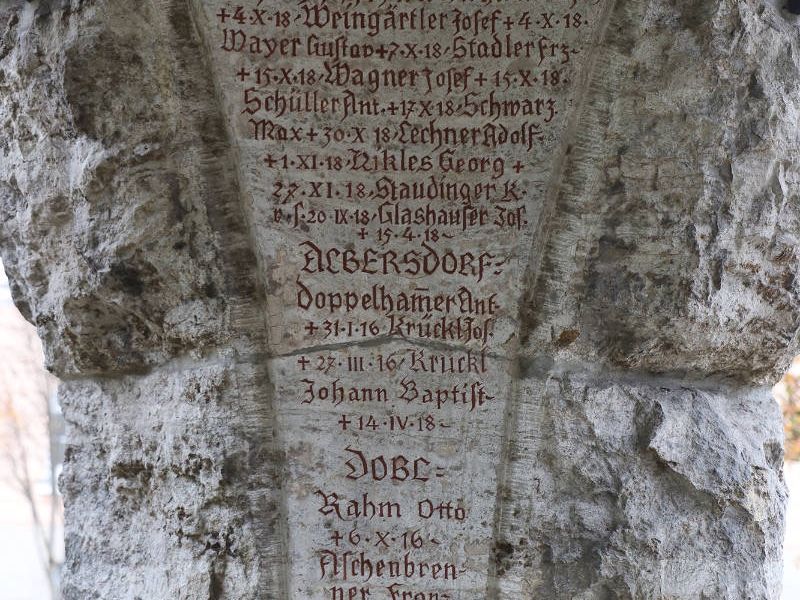 +4·X·18·Weingärtler Josef+4·X·18·
Wayer Gustav+7·X·18·Stadler Frz·
+15·X·18·Wagner Josef+15·X·18·
Schüller Ant.+17·X·18·Schwarz
Max+30·X·18·Lechner Adolf·
+1·XI·18·Nikles Georg+
27·XI·18·Staudinger K·
v.s.20·IX·18·Glashauser Jos.
+15·4·18·
ALBERSDORF=
Doppelham̅er Ant·
+31·I·16 Krückl Jos.
+27·III·16 Krückl
Johann Baptist·
+14·IV·18·
DOBL=
Rahm Otto
+6·X·16·
Aschenbren=
ner Franz